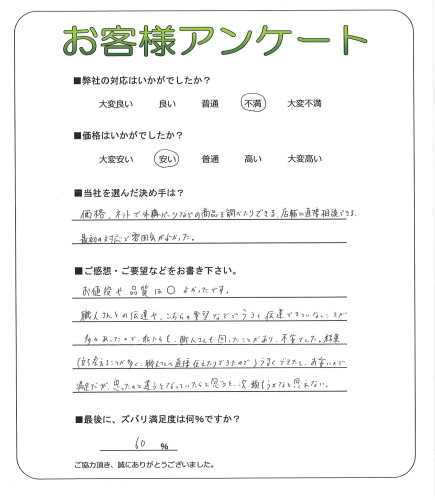 お客様アンケート
■弊社の対応はいかがでしたか？
大変良い 良い 普通 不満 大変不満
■価格はいかがでしたか？
大変安い 安い 普通 高い 大変高い
■当社を選んだ決め手は？
価格、ネットで外構パーツなどの商品を調べたりできる、店舗に直接相談できる。
最初の対応で雰囲気がよかった。
■ご感想・ご要望などをお書き下さい。
お値段や、品質は〇 よかったです。
職人さんとの伝達や、こちらの要望などでうまく伝達できていないことが
多々あったので、私たちも、職人さんも困ったことがあり、不安でした。結果
考えることが多く、職人さんへ直接伝えたりできたのでうまくできたし、お安いので
満足だが、思ったのと違うとなっていたらと思うと、次頼もうかなと思えない。
■最後に、ズバリ満足度は何％ですか？
60 ％
ご協力頂き、誠にありがとうございました。